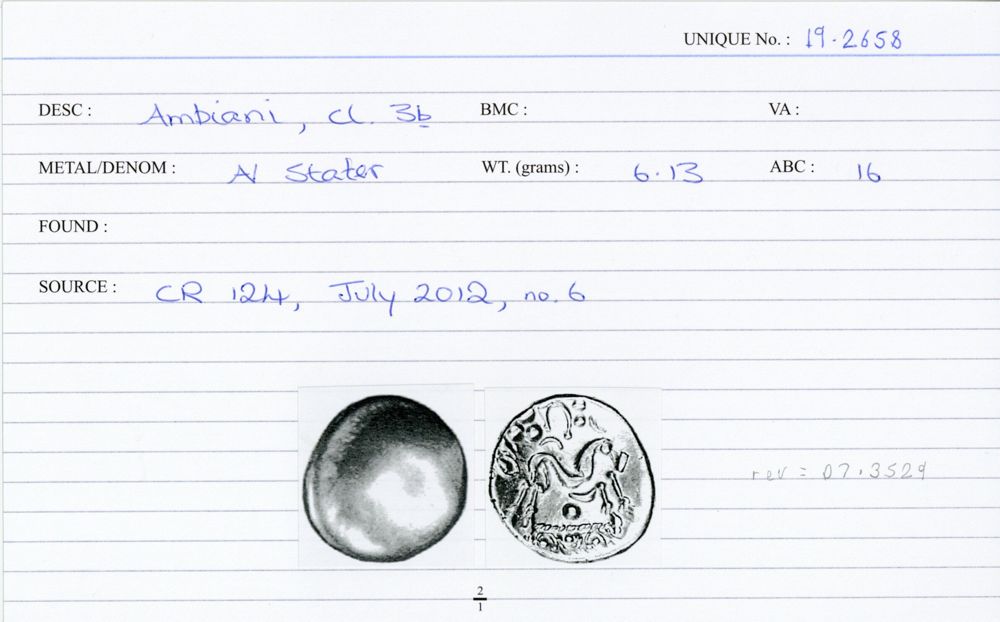 UNIQUE No. : 19.2658
DESC : Ambiani, cl. 3b BMC : VA :
METAL/DENOM : AV Stater WT. (grams) : 6.13 ABC : 16
FOUND :
SOURCE : CR 124, July 2012, no. 6
rev = 07.3529
2
1